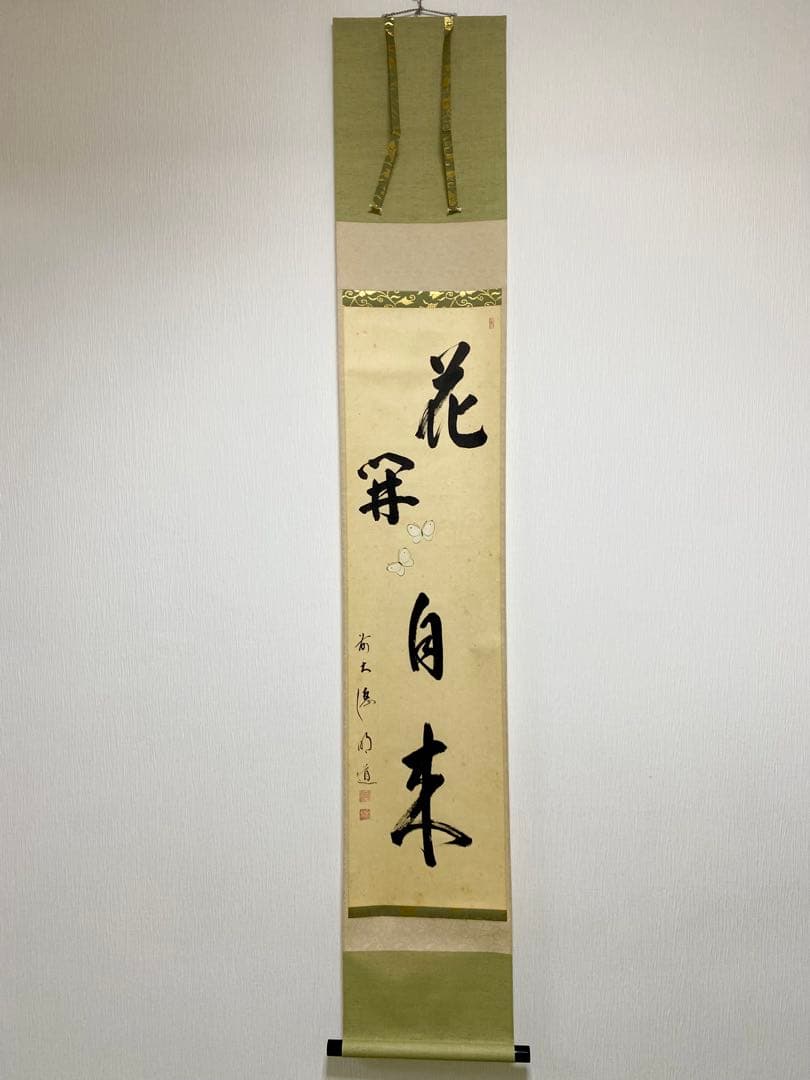 花開自来
前大徳明道